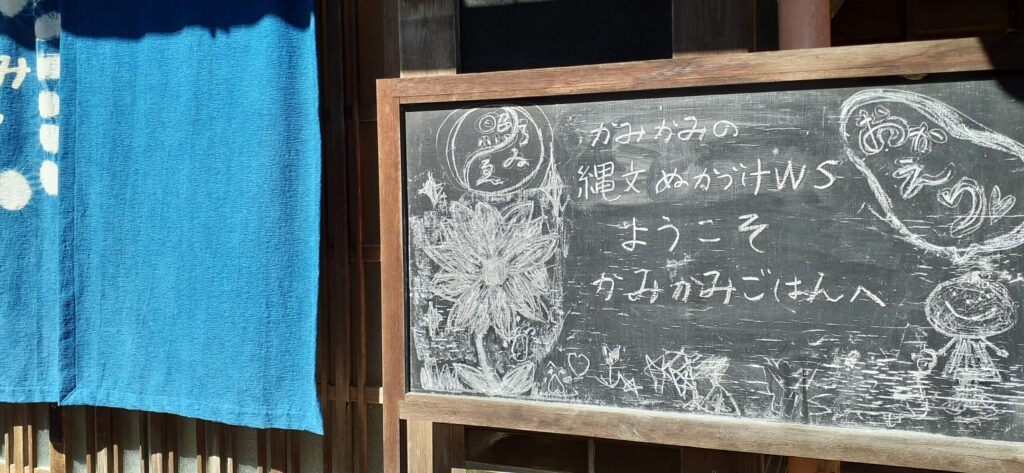 み
かみかみの
縄文ぬかづけWS
ようこそ
かみかみごはんへ
おかえり